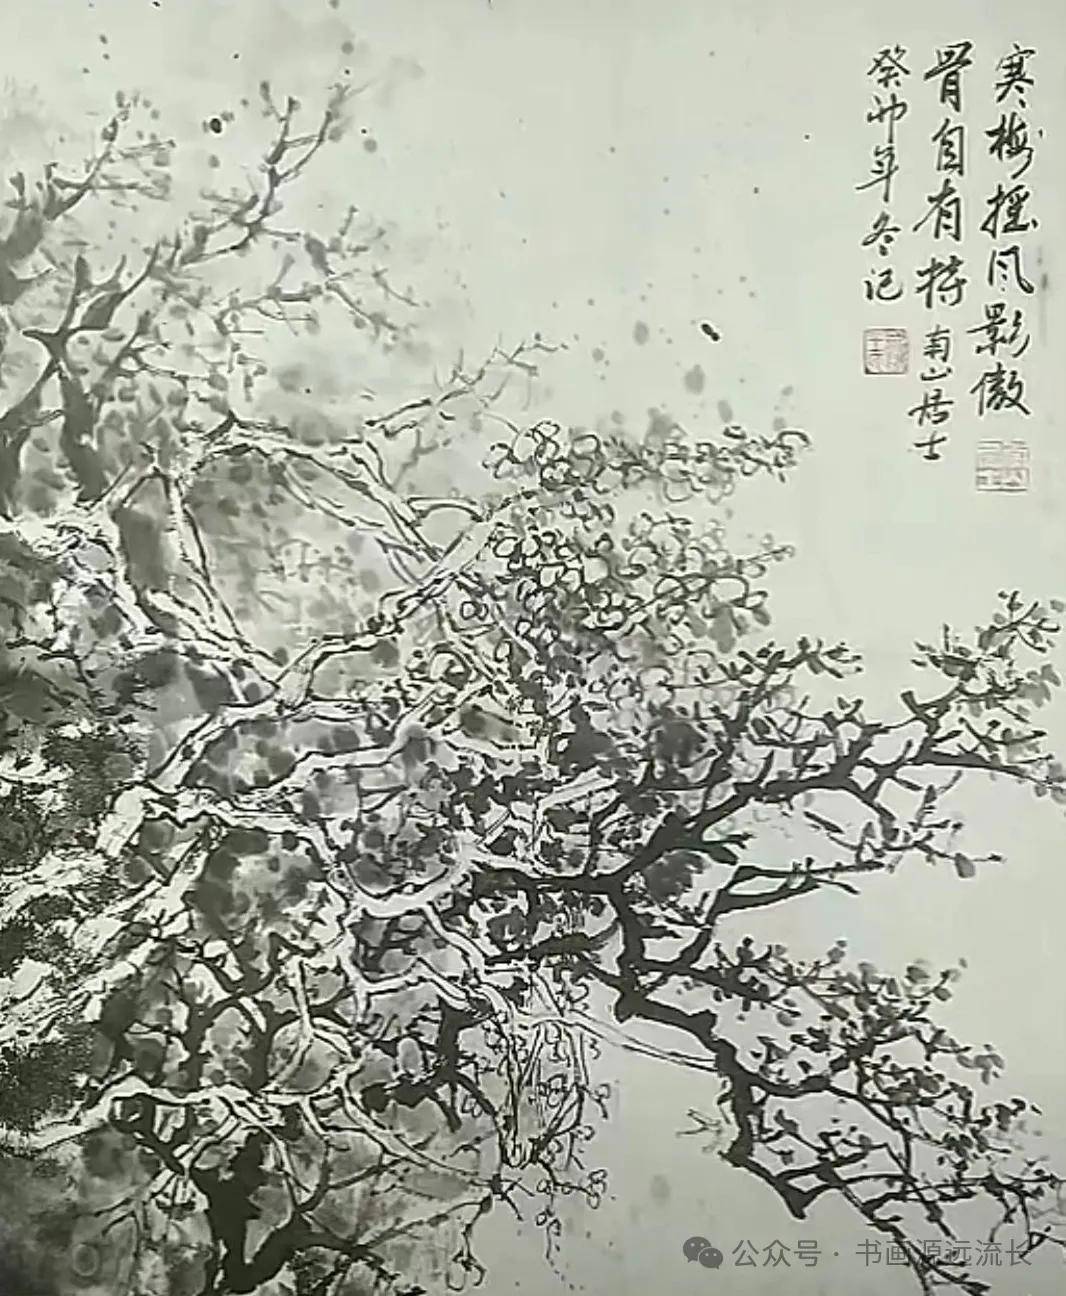 寒梅摇风影傲
骨自有持南山居士
癸卯年冬记
公众号·书画源远流长